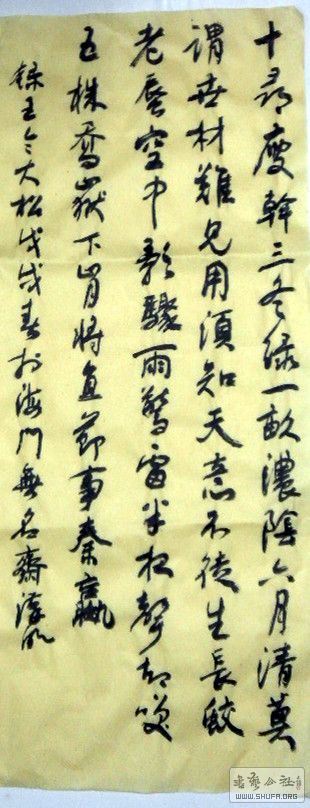 十尋瘦幹三冬綠一畝濃陰六月清莫
謂世材難見用須知天意不徒生長蛟
老蜃空中影驟雨驚雷半夜聲却笑
五株喬嶽下肯將直節事秦嬴
錄王令大松戊戌春於海門無名齋
書藝公社
WWW.SHUFA.ORG